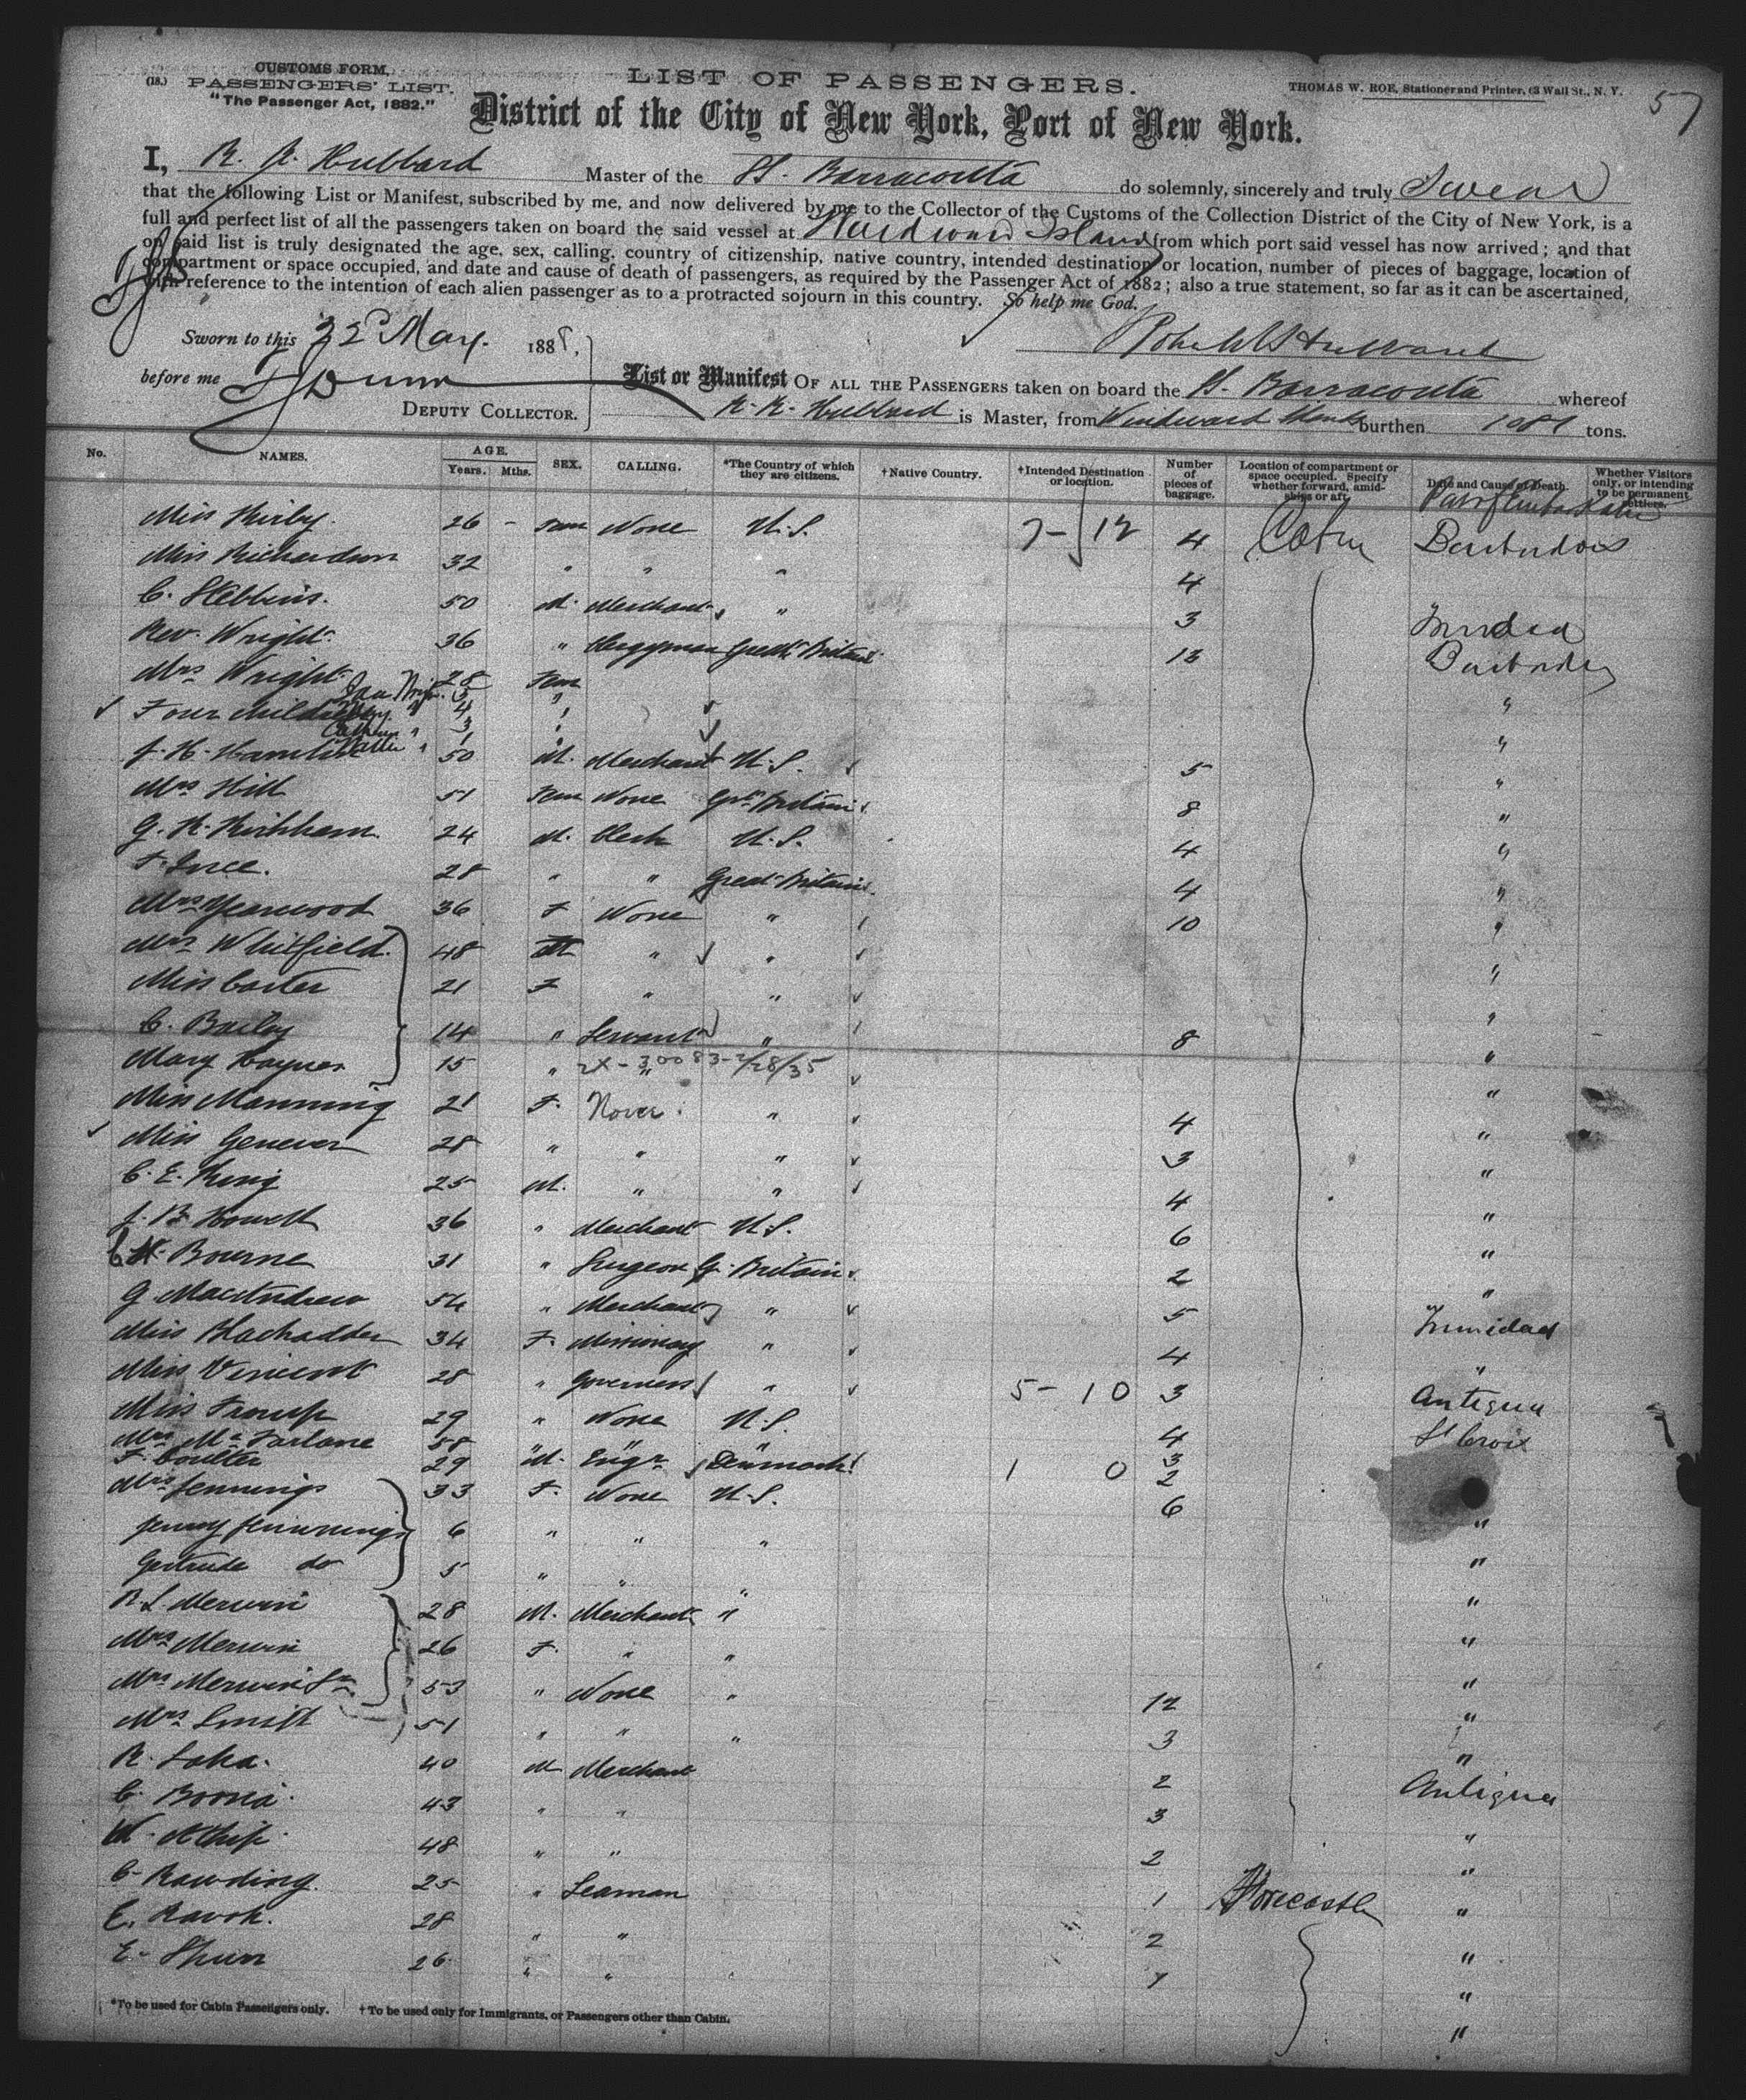 CUSTOMS FORM,
(18.) PASSENGERS' LIST.
"The Passenger Act, 1882."
LIST OF PASSENGERS.
THOMAS W. ROE, Stationer and Printer, 63 Wall St., N. Y.
57
District of the City of New York, Port of New York.
I, R. R. Hubbard Master of the SS. Barracouta do solemnly, sincerely and truly Swear
that the following List or Manifest, subscribed by me, and now delivered by me to the Collector of the Customs of the Collection District of the City of New York, is a
full and perfect list of all the passengers taken on board the said vessel at Windward Islands from which port said vessel has now arrived; and that
on said list is truly designated the age, sex, calling, country of citizenship, native country, intended destination or location, number of pieces of baggage, location of
compartment or space occupied, and date and cause of death of passengers, as required by the Passenger Act of 1882; also a true statement, so far as it can be ascertained,
with reference to the intention of each alien passenger as to a protracted sojourn in this country. So help me God.
Sworn to this 22d May. 1888,
before me
DEPUTY COLLECTOR.
List or Manifest OF ALL THE PASSENGERS taken on board the SS. Barracouta whereof
R. R. Hubbard is Master, from Windward Islands burthen tons.
No. NAMES. AGE. Years. Mths. SEX. CALLING. *The Country of which they are citizens. †Native Country. †Intended Destination or location. Number of pieces of baggage. Location of compartment or space occupied. Specify whether forward, amidships or aft. Date and Cause of Death. Whether Visitors only, or intending to be permanent settlers.
Miss Kirby. 26 - Fem None U.S. 7- 12 4 Cabin Barbadoes
Miss Richardson 32 " " " 4
C. Stebbins. 50 M. Merchant " 3 Trinidad
Rev. Wright. 36 " Clergyman Great Britain 13 Barbados
Mrs Wright. 28 Fem "
Four children 5 4 3 1 " "
J. H. Hamlin 50 M. Merchant U.S. 5 "
Mrs Hill 51 Fem None Grt Britain 8 "
G. R. Kirkham 24 M. Clerk U.S. 4 "
F. Ince. 28 " " Great Britain 4 "
Mrs Yearwood 36 F None " 10 "
Mrs Whitfield. 48 " " "
Miss Carter 21 F " " "
C. Bailey 14 " Servant " 8 "
Mary Haynes 15 " " 2X-30083-2/28/35 "
Miss Manning 21 F. None " 4 "
Miss Genever 28 " " " 3 "
C. E. King 25 M. " " 4 "
J. B. Howell 36 " Merchant U.S. 6 "
C. H. Bourne 31 " Surgeon G. Britain 2 "
G. MacAndrew 54 " Merchant " 5 Trinidad
Miss Blachadder 34 F. Missionary " 4 "
Miss Vincent 28 " Governess " 5- 10 3 Antigua
Miss Tromp 29 " None U.S. 4 St Croix
Mrs McFarlane 58 " " " 3
F. Coulter 29 M. Engr Denmark 1 0 2
Mrs Jennings 33 F. None U.S. 6 "
Jenny Jennings 6 " " " "
Gertrude do 5 " " " "
R. L. Merwin 28 M. Merchant " "
Mrs Merwin 26 F. " " "
Mrs Merwin Sr 53 " None " 12 "
Mrs Smith 51 " " " 3 "
R. Loka. 40 M Merchant 2 Antigua
C. 43 " " 3 "
48 " " 2 "
C. Rawding. 25 " Seaman 1 Forecastle "
E. 28 " " 2 "
E. 26 " " "
*To be used for Cabin Passengers only. †To be used only for Immigrants, or Passengers other than Cabin.